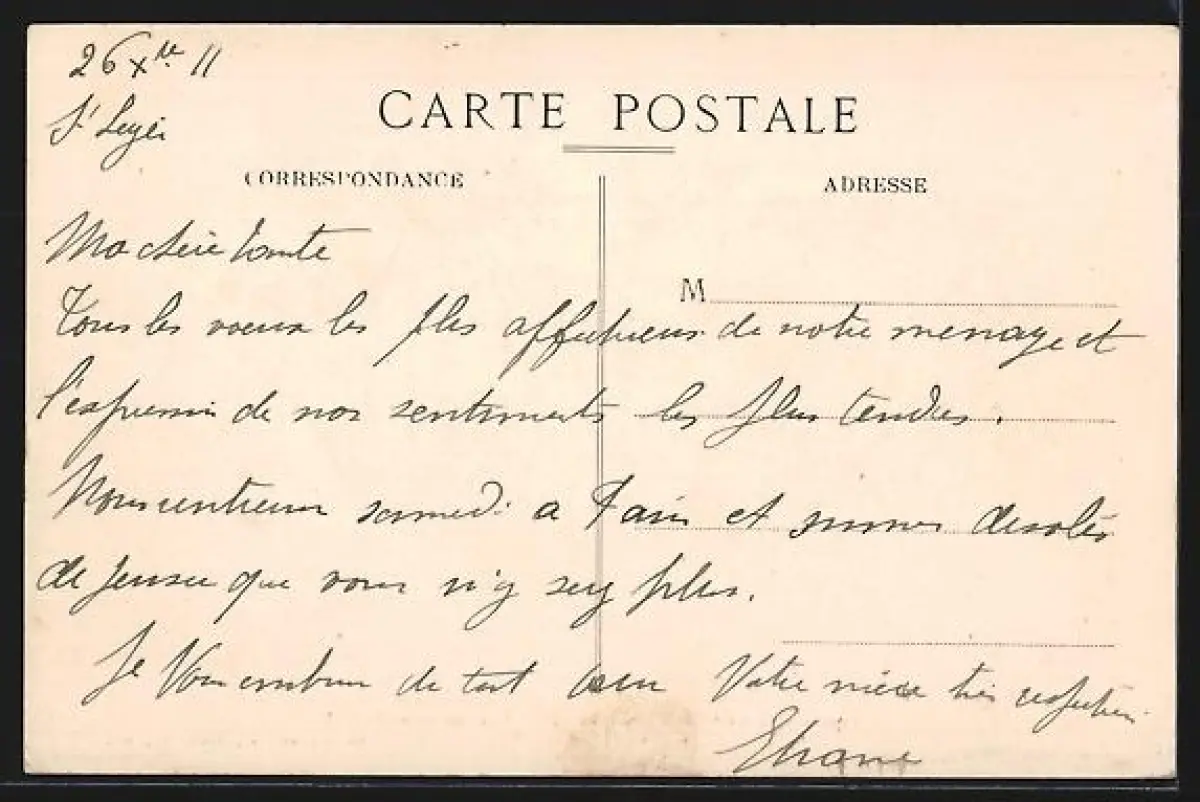 26 Xbre 11
St Leger
CARTE POSTALE
CORRESPONDANCE
ADRESSE
Ma chère tante
M
Tous les voeux les plus affectueux de notre menage et
l'expression de nos sentiments les plus tendres.
Nous rentrerons samedi a Paris et sommes desolés
de penser que vous n'y serez plus.
Je Vous embrasse de tout coeur Votre nièce très respectueuse